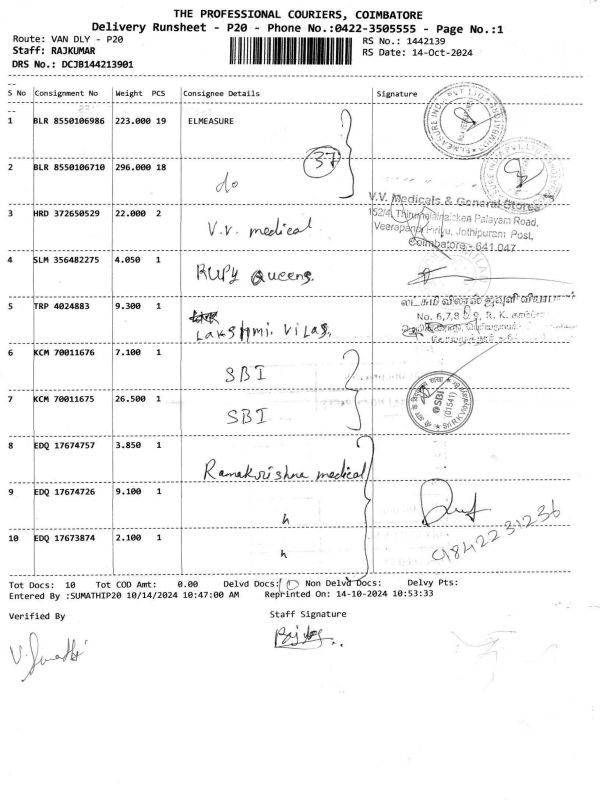 THE PROFESSIONAL COURIERS, COIMBATORE
Delivery Runsheet - P20 - Phone No.:0422-3505555 - Page No.:1
Route: VAN DLY - P20
RS No.: 1442139
Staff: RAJKUMAR
RS Date: 14-Oct-2024
DRS No.: DCJB144213901
S No Consignment No Weight PCS Consignee Details Signature
1 BLR 8550106986 223.000 19 ELMEASURE
37
2 BLR 8550106710 296.000 18 do
V.V. Medicals & General Stores
3 HRD 372650529 22.000 2 V.V. medical
Palayam Road,
Jothipuram Post,
Coimbatore - 641 047
4 SLM 356482275 4.050 1 RUPY Queens.
5 TRP 4024883 9.300 1 LAKSHMI. VILAS.
No. 6,7,8
R. K.
6 KCM 70011676 7.100 1 SBI
7 KCM 70011675 26.500 1 SBI
SBI
(01541)
8 EDQ 17674757 3.850 1 Ramakrishna medical
9 EDQ 17674726 9.100 1 h
9842231236
10 EDQ 17673874 2.100 1 h
Tot Docs: 10 Tot COD Amt: 0.00 Delvd Docs: 10 Non Delvd Docs: Delvy Pts:
Entered By :SUMATHIP20 10/14/2024 10:47:00 AM Reprinted On: 14-10-2024 10:53:33
Verified By Staff Signature
V. Sumathi